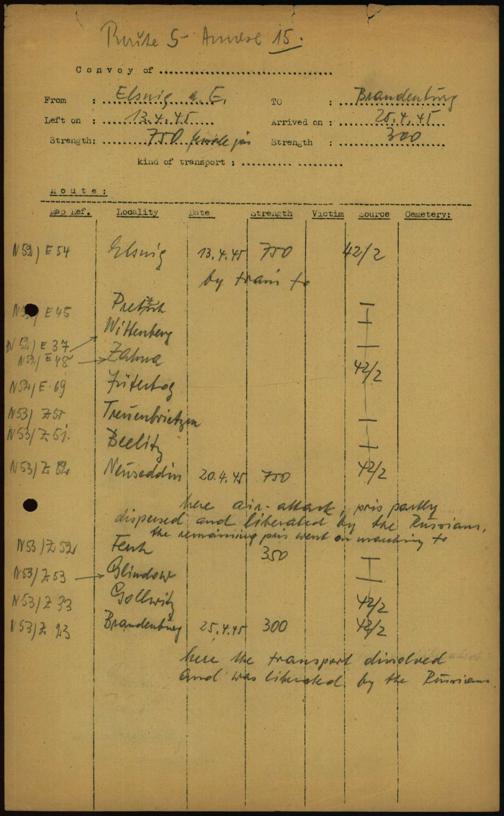 Route 5 Annex 15.
Convoy of
From : Elsnig a. E. TO : Brandenburg
Left on : 13.4.45 Arrived on : 25.4.45
Strength: 750 female pris Strength : 300
kind of transport :
Route:
Map Ref. Locality Date Strength Victim Source Cemetery:
N52/E54 Elsnig 13.4.45 750 42/2
by train to
E45 Pretzsch
N52/E37 Wittenberg
N52/E48 Zahna 42/2
N52/E69 Jüterbog
N53/Z51 Treuenbrietzen
N53/Z51 Beelitz
N53/Z52 Neuseddin 20.4.45 750 42/2
here air-attack, pris partly
dispersed and liberated by the Russians,
the remaining pris went on marching to
N53/Z52 Ferch 350
N53/Z53 Glindow
N53/Z33 Gollwitz 42/2
N53/Z23 Brandenburg 25.4.45 300 42/2
here the transport dissolved
and was liberated by the Russians